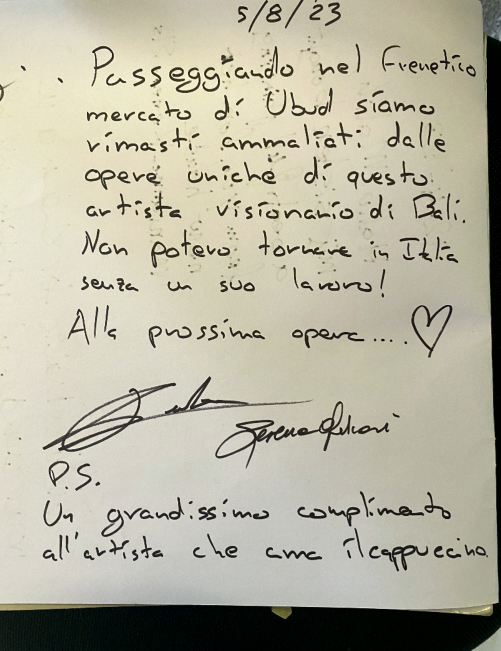 5/8/23
Passeggiando nel Frenetico
mercato di Ubud siamo
rimasti ammaliati dalle
opere uniche di questo
artista visionario di Bali.
Non potevo tornare in Italia
senza un suo lavoro!
Alla prossima opera....♡
Serena
P.S.
Un grandissimo complimento
all'artista che ama il cappuccino.